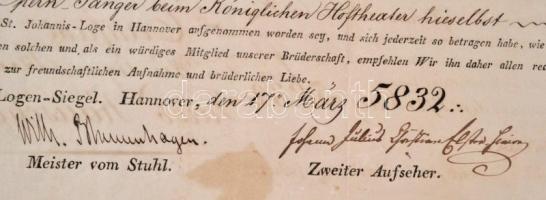 pern-Sänger beim Königlichen Hoftheater hieselbst
St. Johannis-Loge in Hannover aufgenommen worden sey, und sich jederzeit so betragen habe, wie
en solchen und als ein würdiges Mitglied unserer Brüderschaft, empfehlen Wir ihn daher allen rec
zur freundschaftlichen Aufnahme und brüderlicher Liebe.
Logen-Siegel. Hannover, den 17 März 5832.∴
Wilh. Blumenhagen. Johann Julius Christian
Meister vom Stuhl. Zweiter Aufseher.